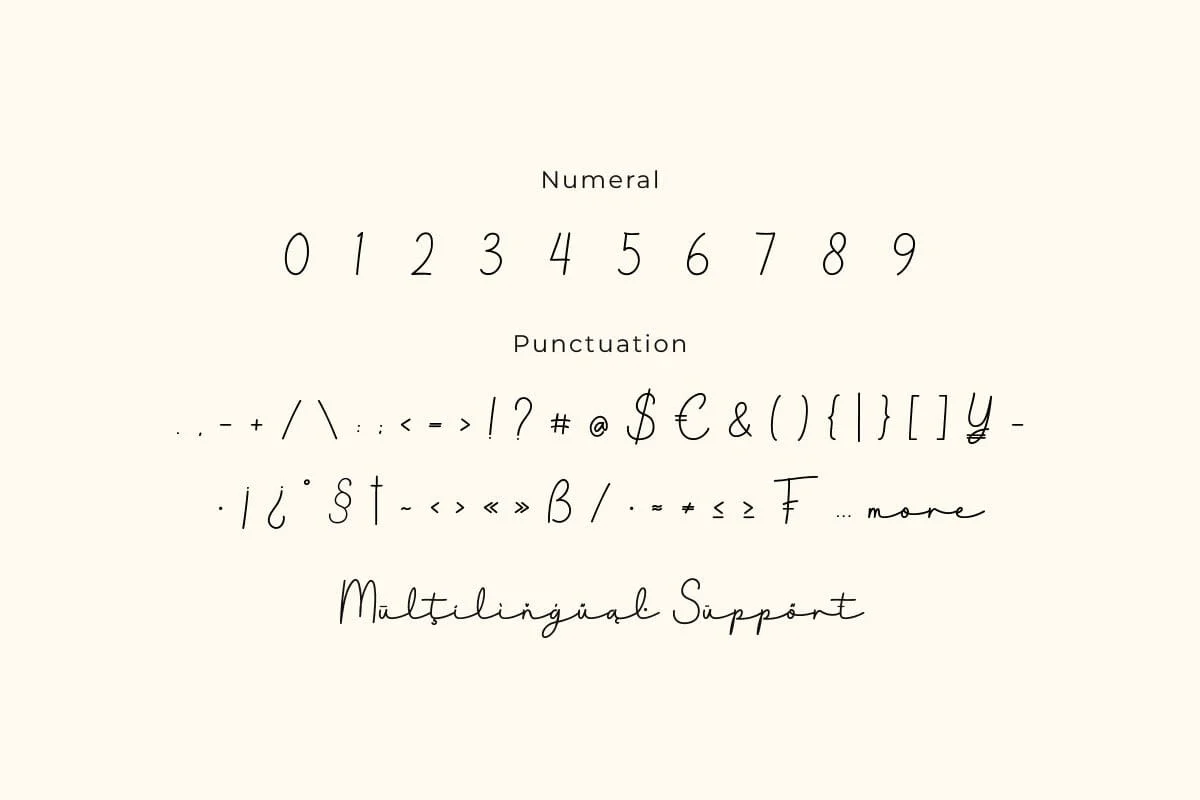 Numeral
0 1 2 3 4 5 6 7 8 9
Punctuation
. , - + / \ : ; < = > ! ? # @ $ € & ( ) { | } [ ] ¥ -
· ¡ ¿ ° § † ~ ‹ › « » ß / · ≈ ≠ ≤ ≥ ₣ ... more
Mūlţiliṅġůąŀ Sūppőrt